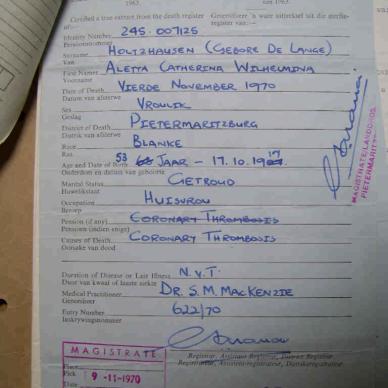 1963. van 1963.
Certified a true extract from the death register Gesertifiseer 'n ware uittreksel uit die sterfte-
of:— register van:—
Identity Number 245-007125
Persoonsnommer
Surname HOLTZHAUSEN (GEBORE DE LANGE)
Van
First Names ALETTA CATHERINA WILHELMINA
Voorname
Date of Death VIERDE NOVEMBER 1970
Datum van afsterwe
Sex VROULIK
Geslag
District of Death PIETERMARITZBURG
Distrik van afsterwe
Race BLANKE
Ras
Age and Date of Birth 53 JAAR - 17.10.1917
Ouderdom en datum van geboorte
Marital Status GETROUD
Huwelikstaat
Occupation HUISVROU
Beroep
Pension (if any) CORONARY THROMBOSIS
Pensioen (indien enige)
Causes of Death CORONARY THROMBOSIS
Oorsake van dood
Duration of Disease or Last Illness N.v.T.
Duur van kwaal of laaste siekte
Medical Practitioner DR. S. M. MACKENZIE
Geneesheer
Entry Number 622/70
Inskrywingsnommer
Registrar, Assistant Registrar, District Registrar
Registrateur, Assistentregistrateur, Distriksregistrateur
MAGISTRATE
Place
Plek
9 -11- 1970
Date
MAGISTRATE/LANDDROS
PIETERMARITZ